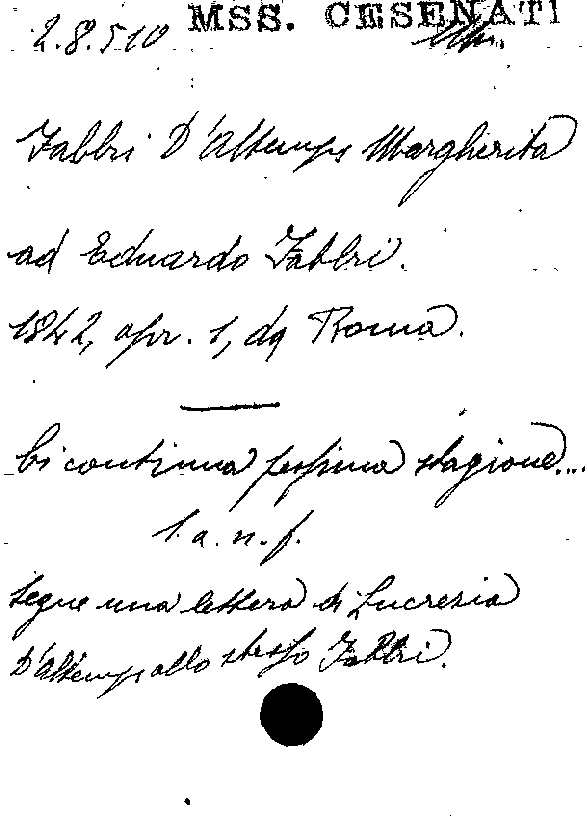 MSS. CESENATI
2.8.510
Fabbri D'Altemps Margherita
ad Eduardo Fabbri.
1842, apr. 1, da Roma.
Ci continua pessima stagione...
l. a. n. f.
segue una lettera di Lucrezia
D'Altemps allo stesso Fabbri.